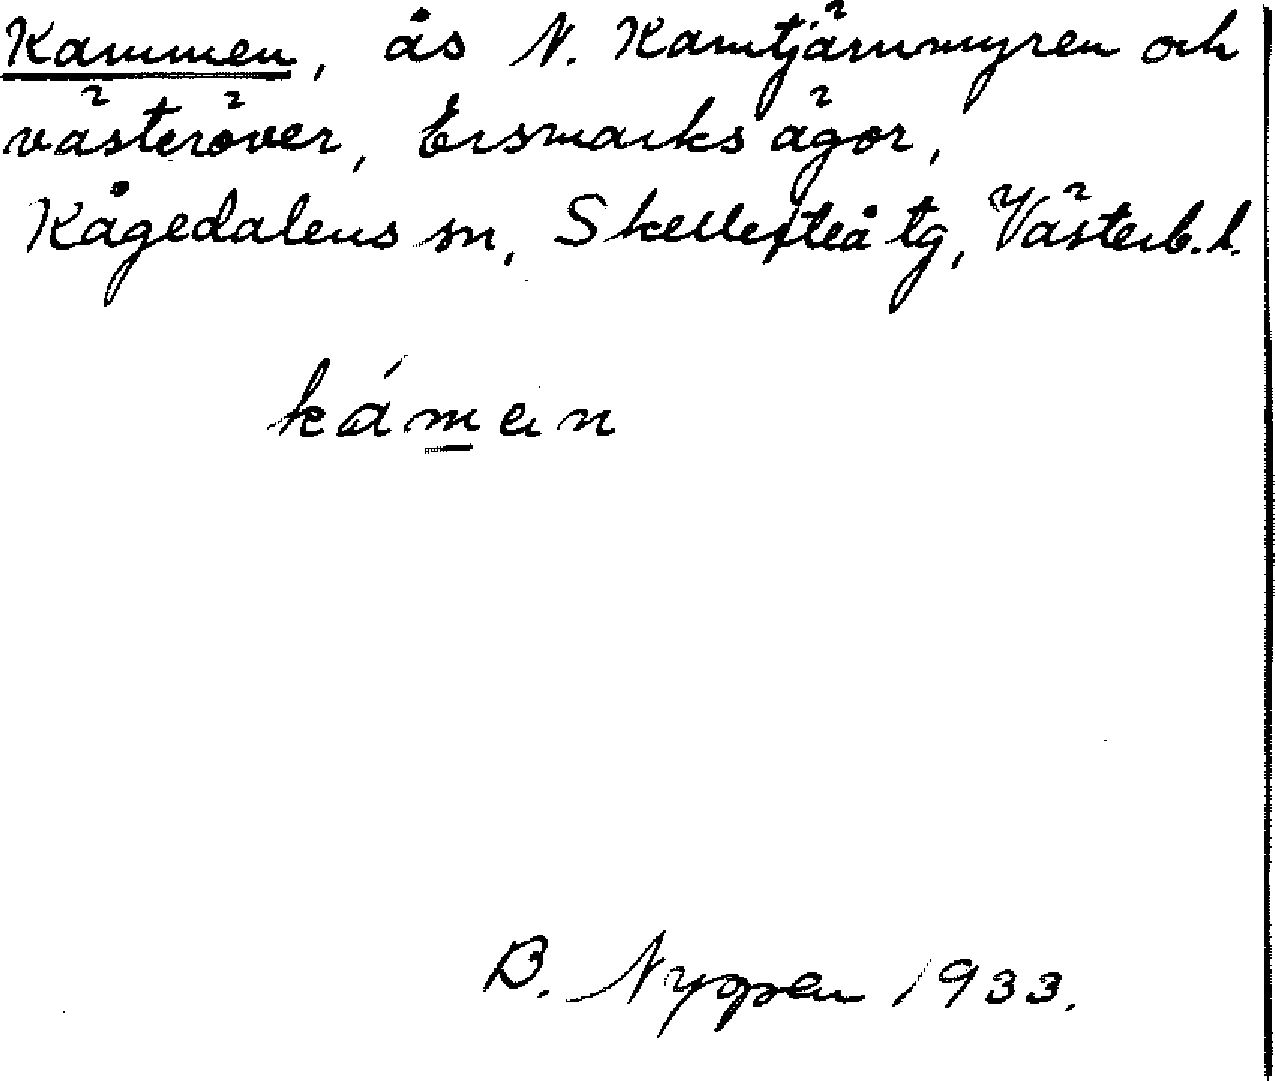 Kammen, ås N. Kamtjärnmyren och
västeröver, Ersmarks ägor,
Kågedalens sn, Skellefteå tg, Västerb. l.
kámen
B. Nyppen 1933.